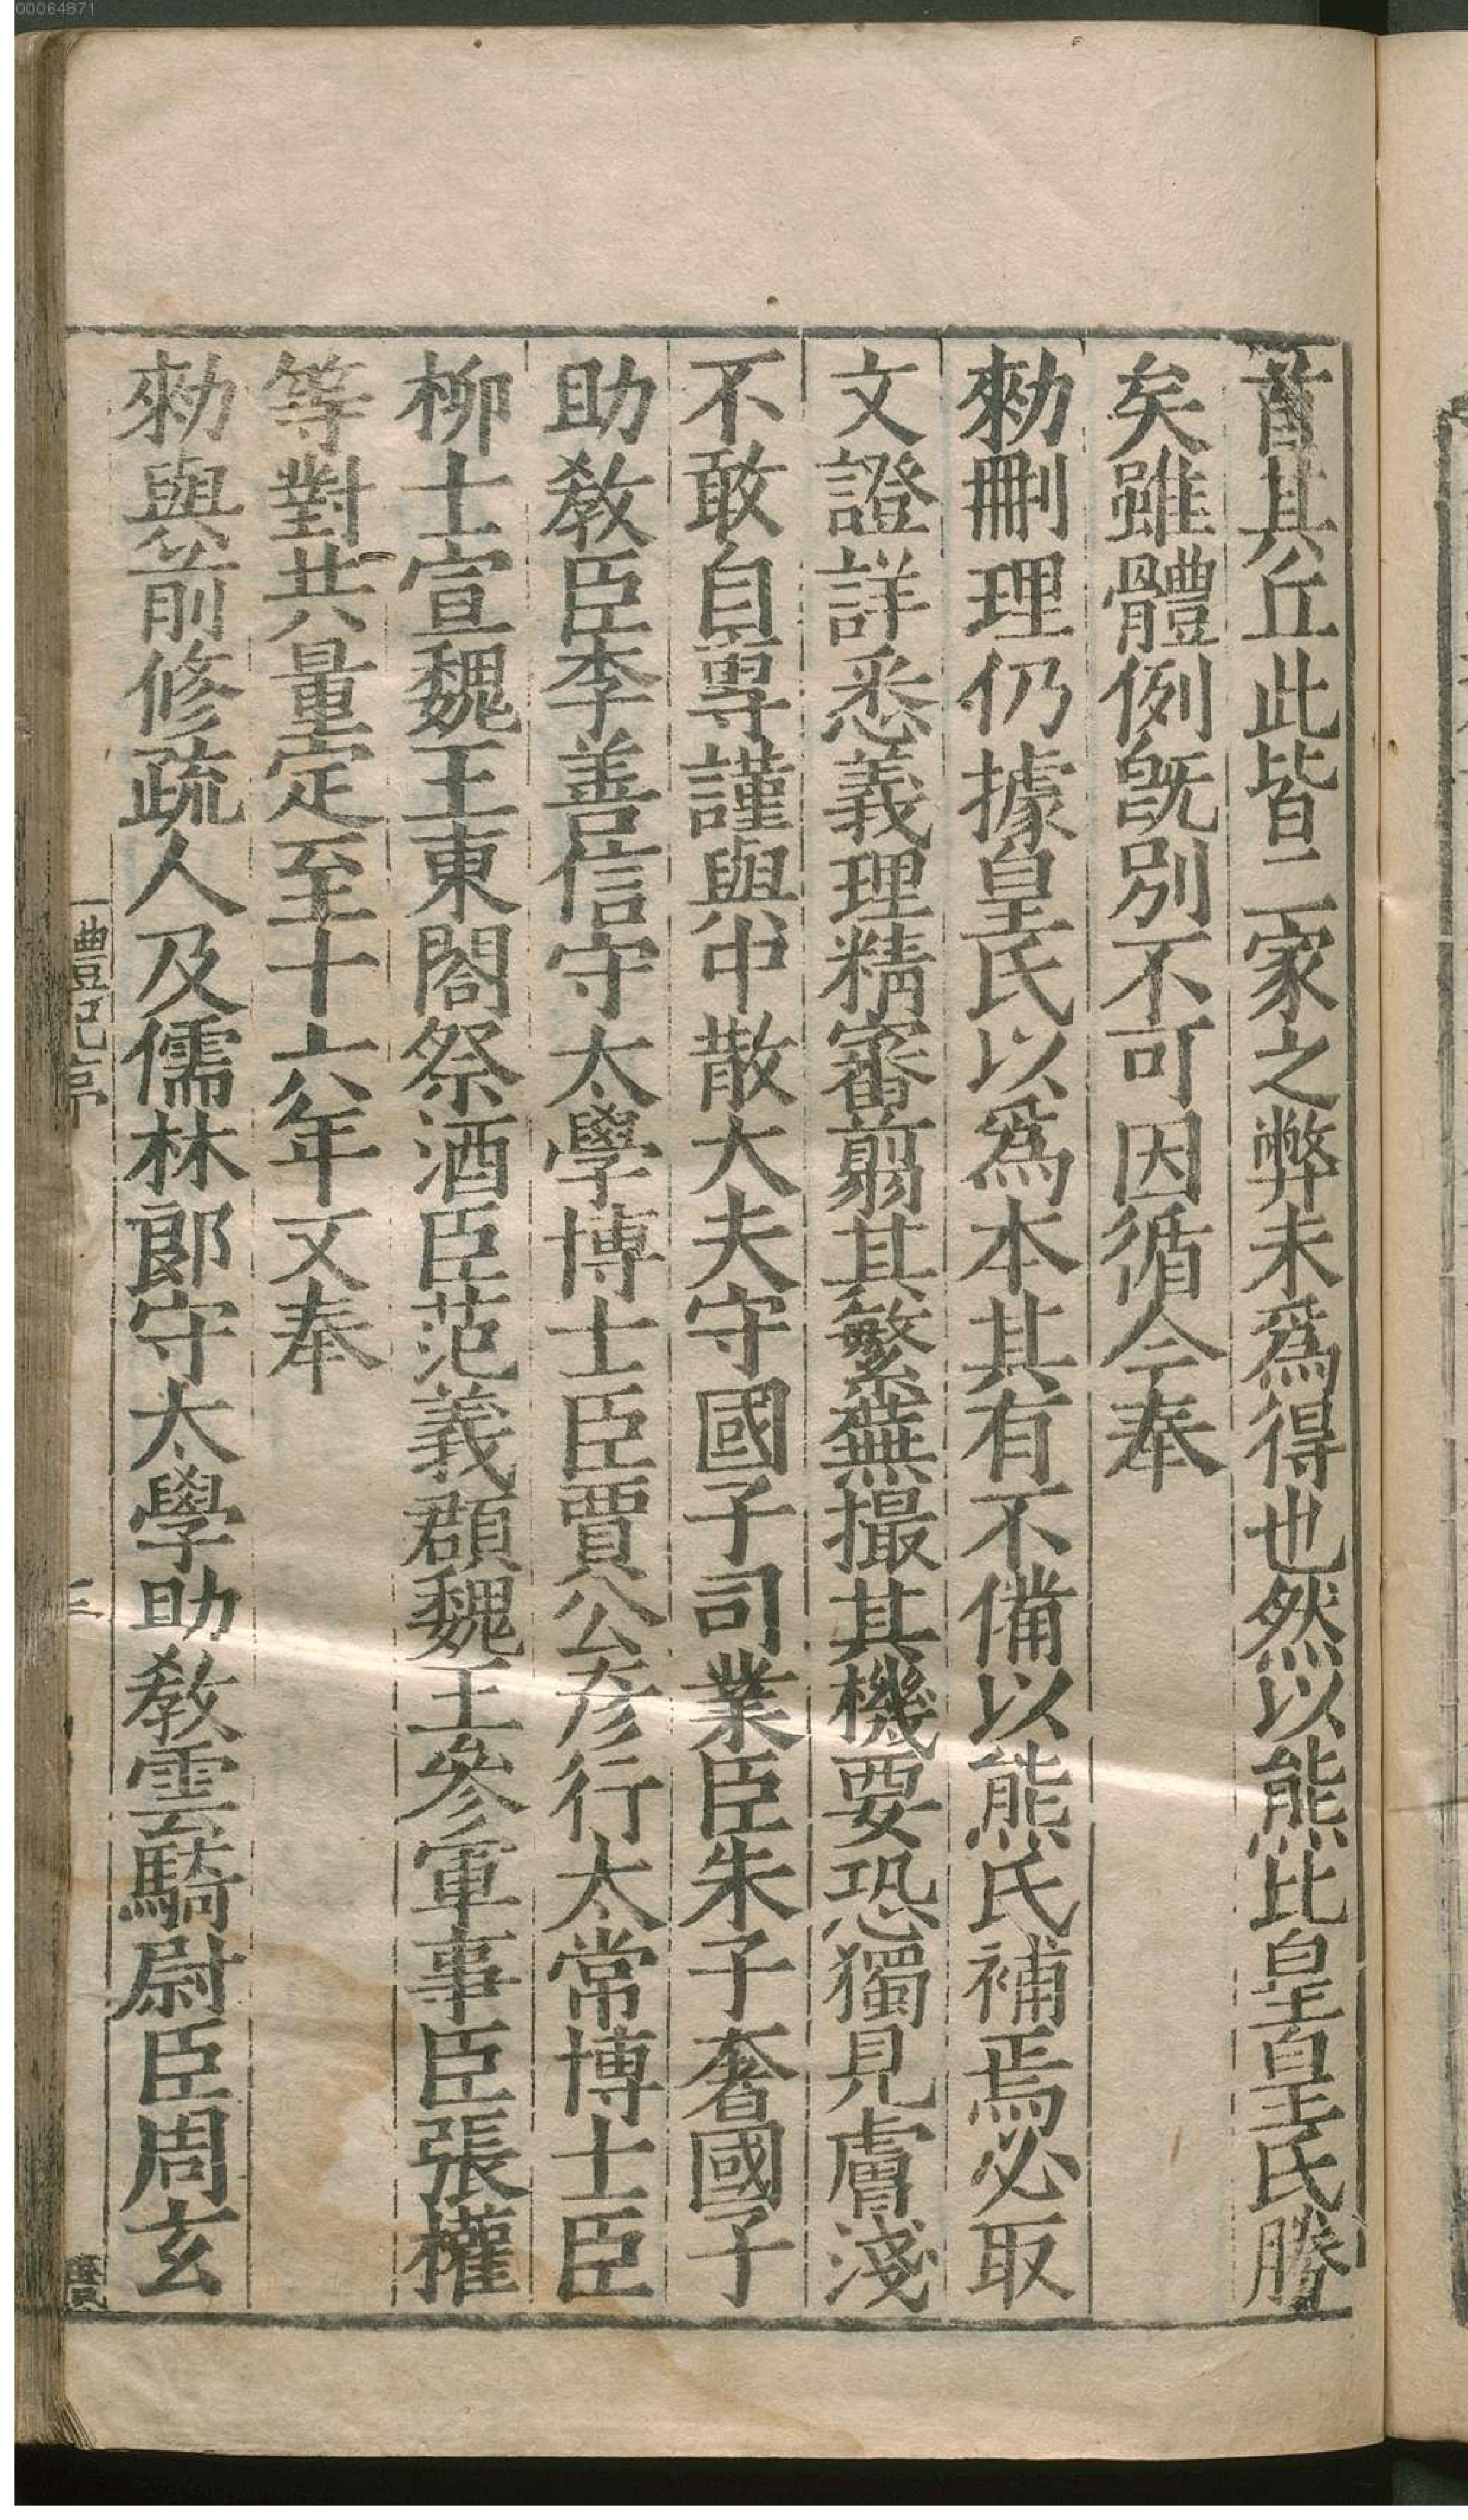 首其丘此皆二家之弊未爲得也然以熊比皇皇氏勝
矣雖體例旣別不可因循今奉
勑刪理仍據皇氏以爲本其有不備以熊氏補焉必取
文證詳悉義理精審翦其繁蕪撮其機要恐獨見膚淺
不敢自專謹與中散大夫守國子司業臣朱子奢國子
助敎臣李善信守太學博士臣賈公彥行太常博士臣
柳士宣魏王東閤祭酒臣范義頵魏王參軍事臣張權
等對共量定至十六年又奉
勑與前修疏人及儒林郎守太學助敎雲騎尉臣周玄
禮記序
三
00064871